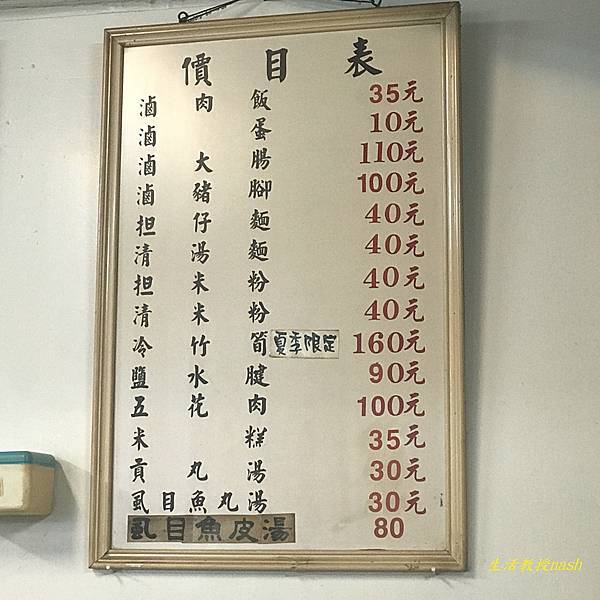 價目表
滷肉飯 35元
滷蛋 10元
滷大腸 110元
滷豬腳 100元
担仔麵 40元
清湯麵 40元
担米粉 40元
清米粉 40元
冷竹筍 夏季限定 160元
鹽水腱 90元
五花肉 100元
米糕 35元
貢丸湯 30元
虱目魚丸湯 30元
虱目魚皮湯 80
生活教授nash